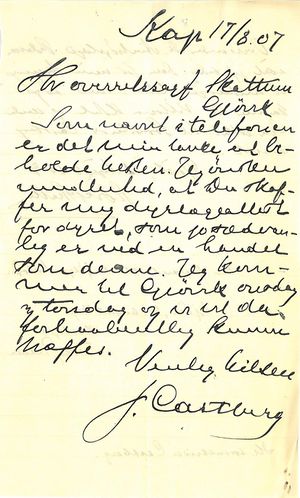 Kap 17/8.07
Hr overretssagf. Skattum
Gjövik
Som nævnt i telefonen
er det min tanke at be-
holde hesten. Jeg önsker
imidlertid, at Du skaf-
fer mig dyrlægeattest
for dyret, som jo sædvan-
lig er ved en handel
som denne. Jeg kom-
mer til Gjövik onsdag
torsdag og vi vil da
forhaabentlig kunne
træffes.
Venlig hilsen
J. Castberg